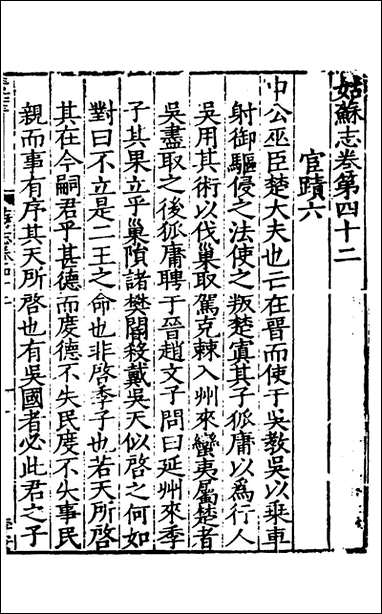 姑蘇志卷第四十二
官蹟六
申公巫臣楚大夫也亡在晉而使于吳教吳以乗車
射御驅侵之法使之叛楚寘其子狐庸以為行人
吳用其術以伐巢取駕克棘入州來蠻夷屬楚者
吳盡取之後狐庸聘于晉趙文子問曰延州來季
子其果立乎巢隕諸樊閽殺戴吳天似啓之何如
對曰不立是二王之命也非啓季子也若天所啓
其在今嗣君乎甚德而度德不失民度不失事民
親而事有序其天所啓也有吳國者必此君之子